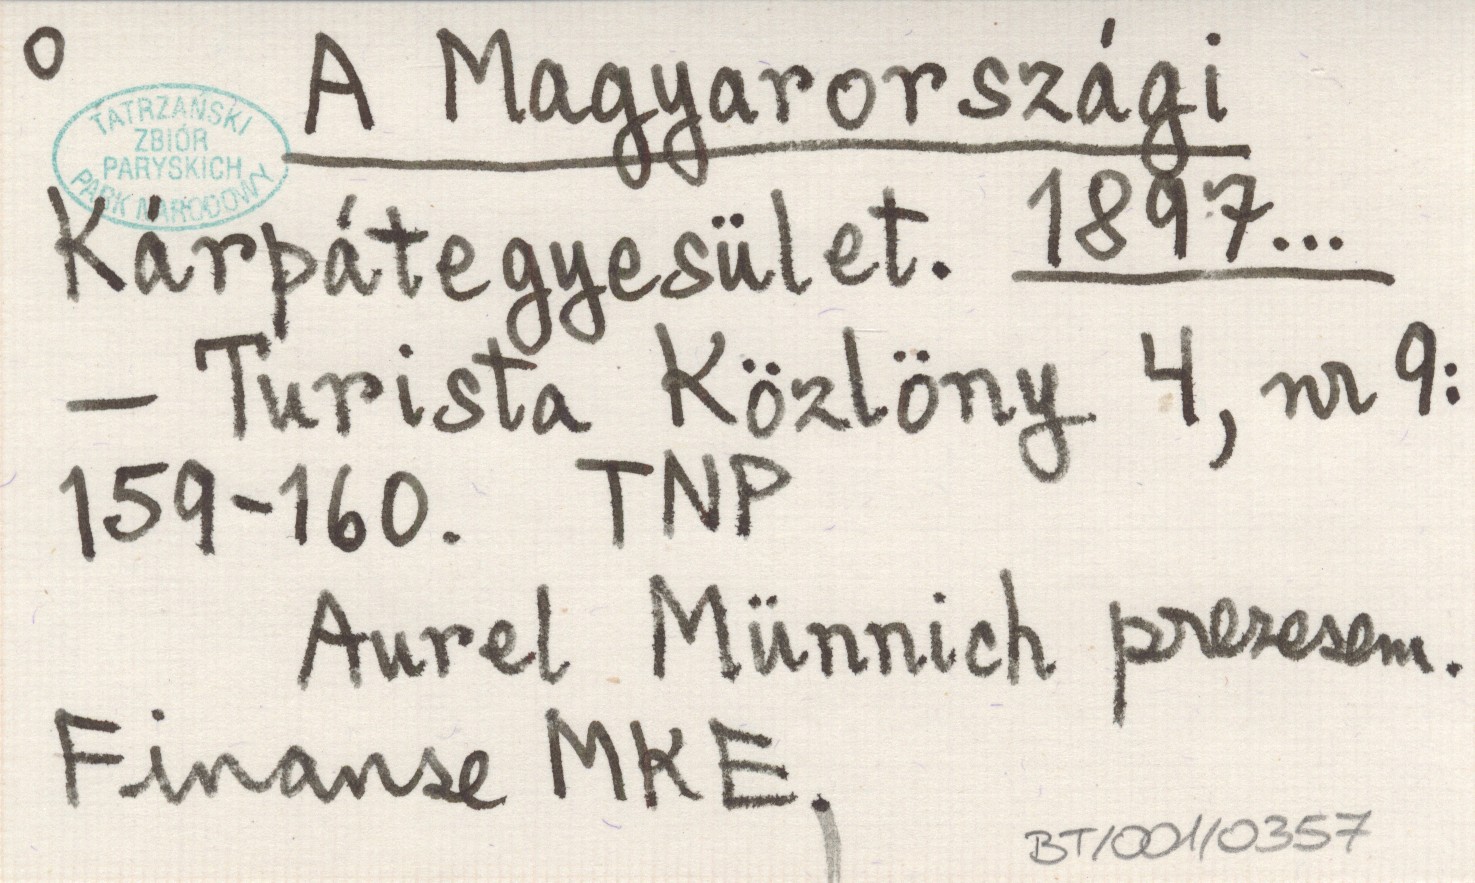 O
A Magyarországi
TATRZAŃSKI
ZBIÓR
PARYSKICH
PARK NARODOWY
Kárpátegyesület. 1897...
— Turista Közlöny 4, nr 9:
159-160. TNP
Aurel Münnich prezesem.
Finanse MKE.
BT/001/0357